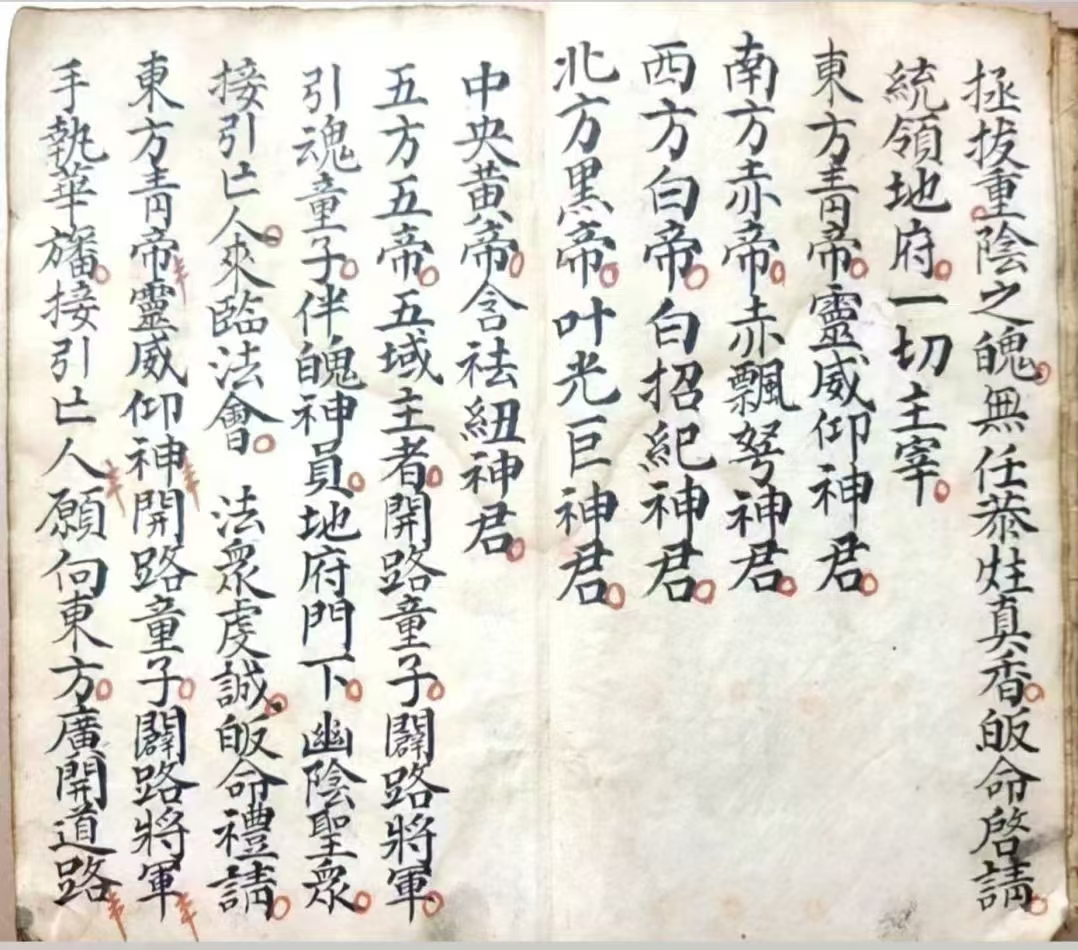 拯拔重陰之魄無任恭炷真香皈命啓請
統領地府一切主宰
東方青帝靈威仰神君
南方赤帝赤飄弩神君
西方白帝白招紀神君
北方黑帝叶光巨神君
中央黃帝含祛紐神君
五方五帝五域主者開路童子闢路將軍
引魂童子伴魄神員地府門下幽陰聖眾
接引亡人來臨法會 法眾虔誠皈命禮請
東方青帝靈威仰神開路童子闢路將軍
手執華旛接引亡人願向東方廣開道路